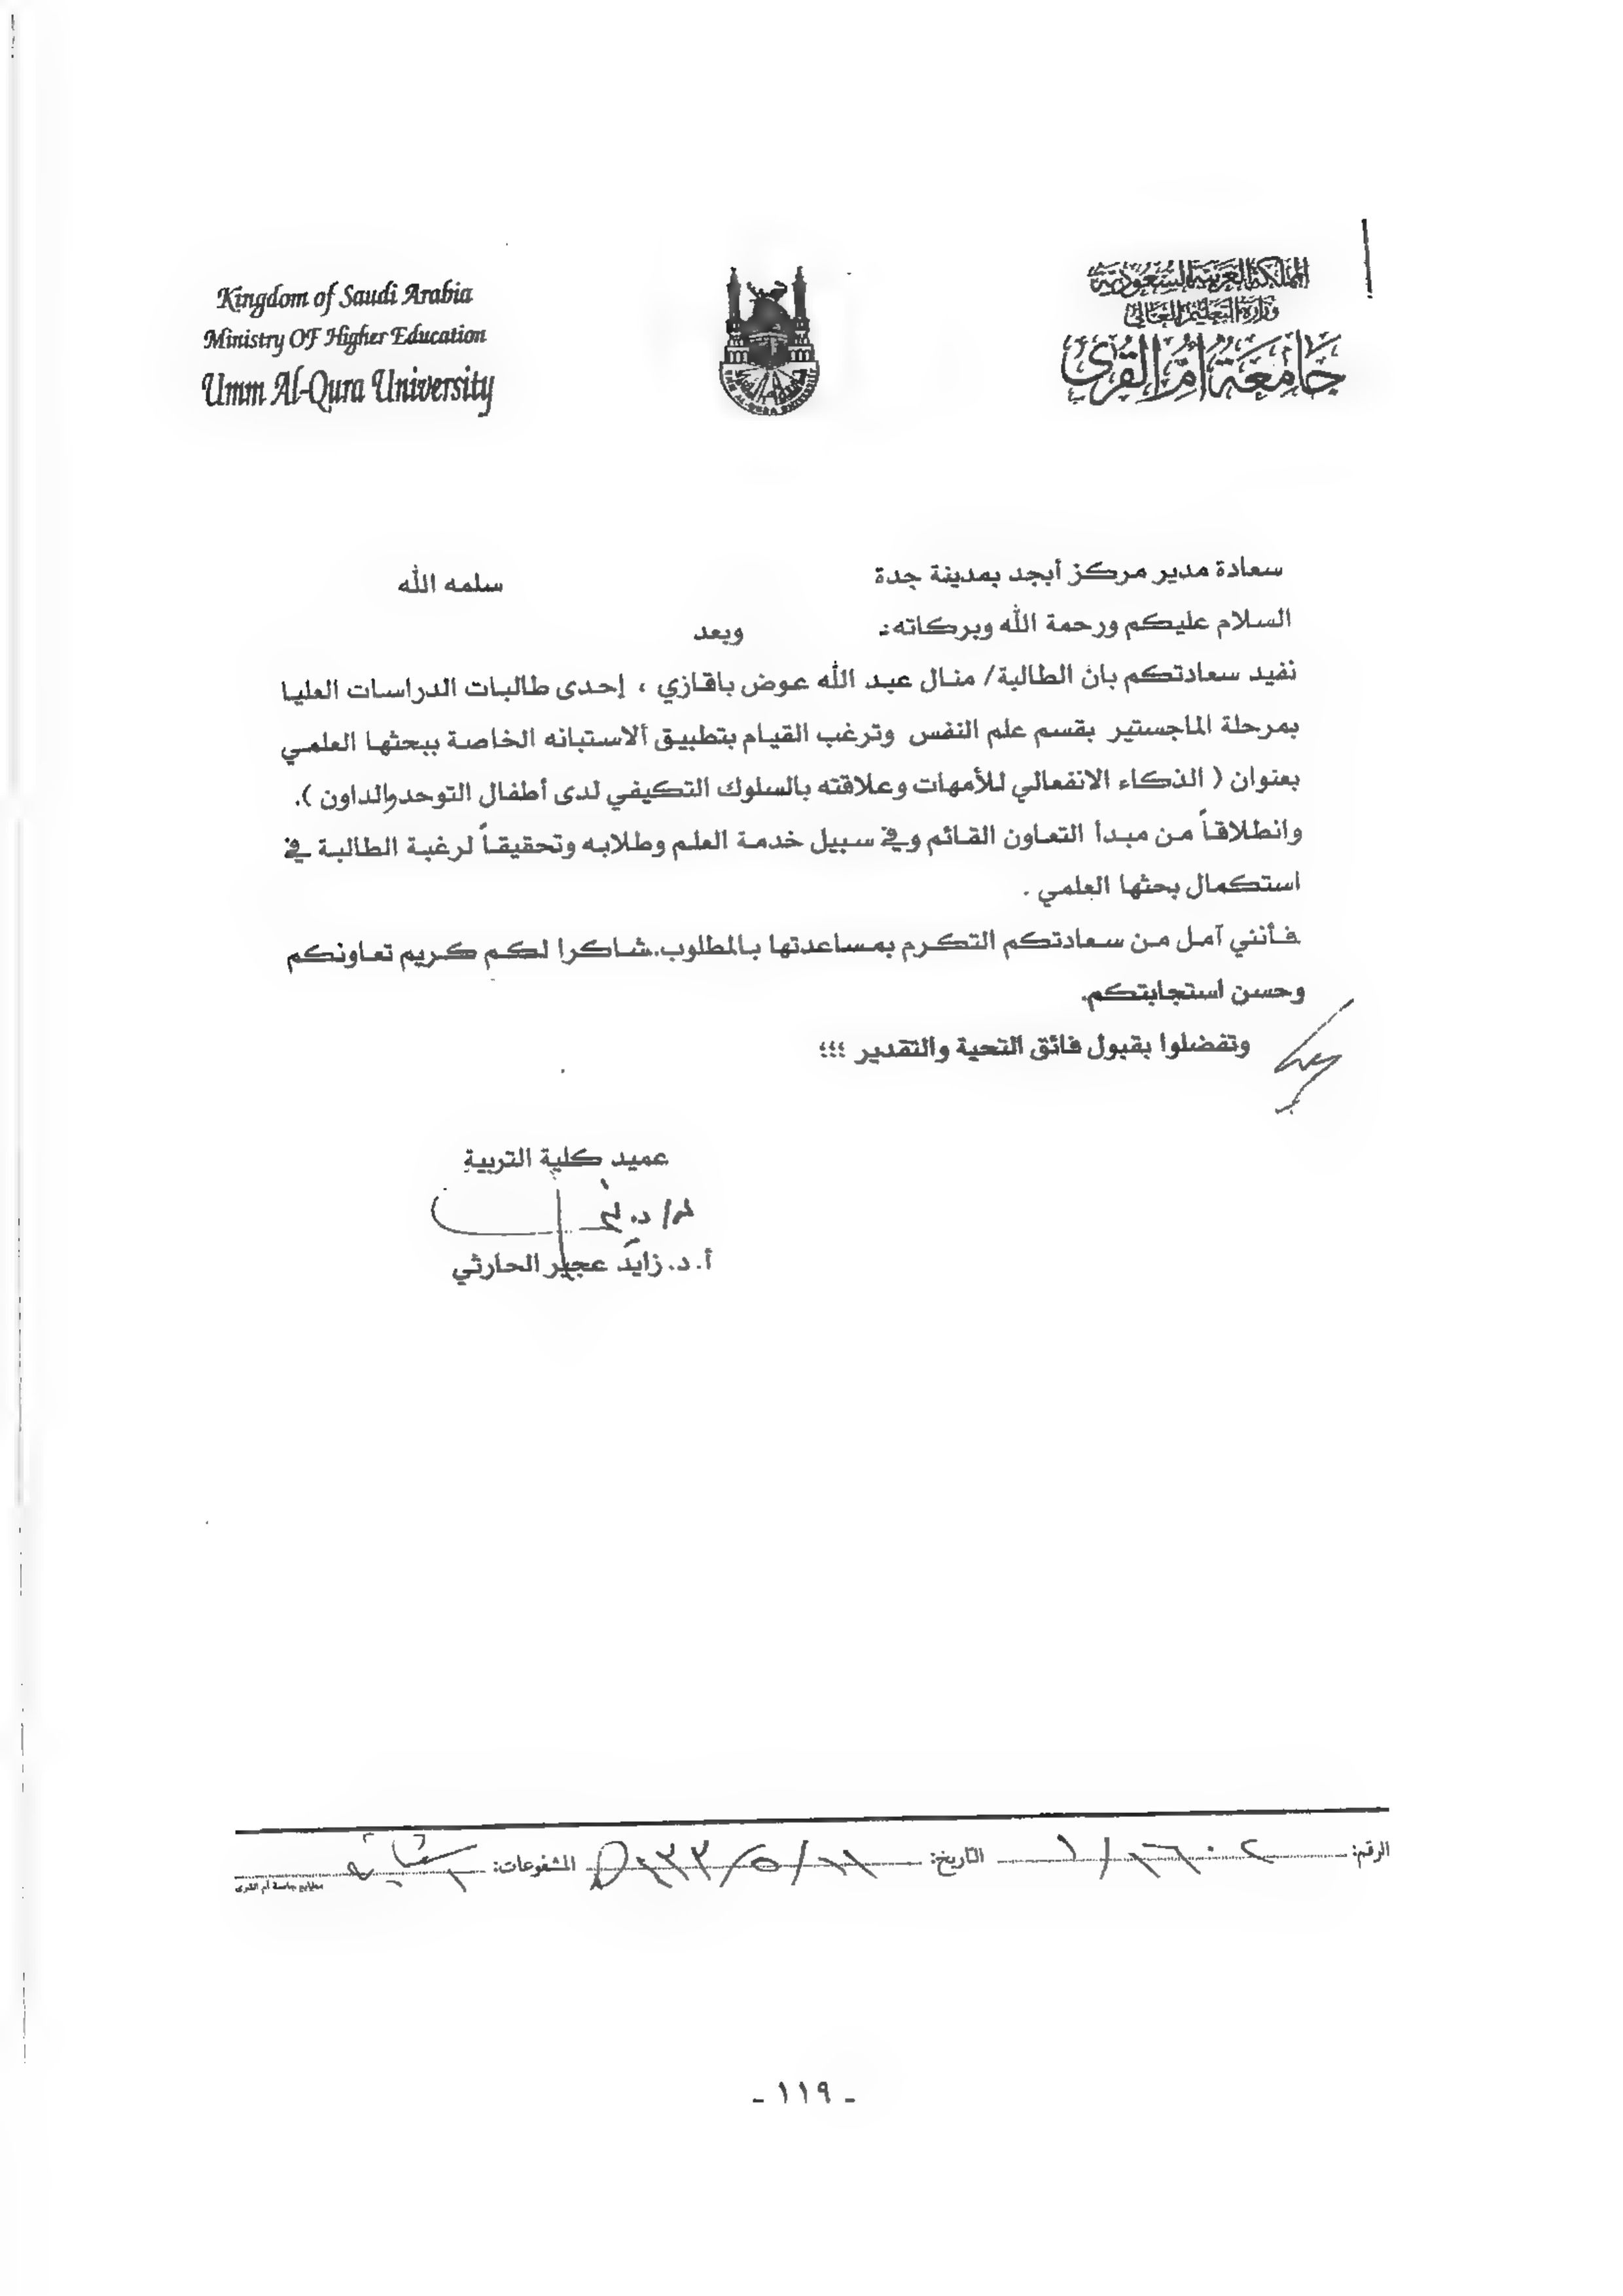 المملكة العربية السعودية
وزارة التعليم العالي
جامعة أم القرى
Kingdom of Saudi Arabia
Ministry OF Higher Education
Umm Al-Qura University
سعادة مدير مركز أبجد بمدينة جدة سلمه الله
السلام عليكم ورحمة الله وبركاته: وبعد
نفيد سعادتكم بان الطالبة/ منال عبد الله عوض باقازي ، إحدى طالبات الدراسات العليا
بمرحلة الماجستير بقسم علم النفس وترغب القيام بتطبيق ألاستبانه الخاصة ببحثها العلمي
بعنوان ( الذكاء الانفعالي للأمهات وعلاقته بالسلوك التكيفي لدى أطفال التوحد والداون ).
وانطلاقاً من مبدأ التعاون القائم وفي سبيل خدمة العلم وطلابه وتحقيقاً لرغبة الطالبة في
استكمال بحثها العلمي .
فأنني آمل من سعادتكم التكرم بمساعدتها بالمطلوب.شاكرا لكم كريم تعاونكم
وحسن استجابتكم.
وتفضلوا بقبول فائق التحية والتقدير ؛؛؛
عميد كلية التربية
أ. د. زايد عجير الحارثي
الرقم: التاريخ: المشفوعات:
مطابع جامعة أم القرى
- ١١٩ -